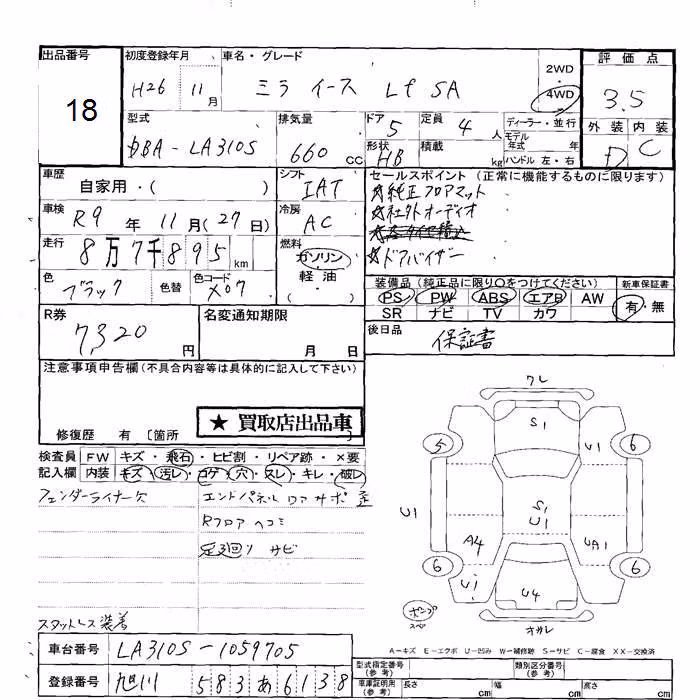 出品番号 初度登録年月 車名・グレード 2WD 4WD 評価点
18 H26 11月 ミラ イース Lf SA 3.5
型式 排気量 ドア 定員 ディーラー・並行 外装 内装
DBA-LA310S 660 cc 5 4人 モデル年式 年 D C
形状 HB 積載 kg ハンドル 左・右
車歴 シフト セールスポイント(正常に機能するものに限ります)
自家用・( ) IAT ☆純正フロアマット
車検 R9年 11月(27日) 冷房 AC ☆社外オーディオ
走行 8万7千895km 燃料 ガソリン 軽・油 ( )
☆ドアバイザー
色 ブラック 色替 色コード X07
装備品(純正品に限り○をつけてください) 新車保証書
PS PW ABS エアB AW 有・無
SR ナビ TV カワ
R券 7,320円 名変通知期限 月 日
後日品 保証書
注意事項申告欄(不具合内容等は具体的に記入して下さい)
★ 買取店出品車
修復歴 有 〔箇所
検査員記入欄 FW キズ・飛石・ヒビ割・リペア跡・×要
内装 キズ・汚レ・コゲ・穴・スレ・キレ・破レ
フェンダーライナー欠 エンドパネル ロアサポ 歪
Rフロア ヘコミ
足廻り サビ
スタットレス装着
ワレ
S1
5 U1 6
U1 S1 U1
A4 UA1
6 6
U1 U4
ポンプ スペ
オサレ
A=キズ E=エクボ U=凹み W=補修跡 S=サビ C=腐食 XX=交換済
車台番号 LA310S-1059705
型式指定番号(参考) 類別区分番号(参考)
登録番号 旭川 583 あ 6138
車庫証明用(参考) 長さ cm 幅 cm 高さ cm